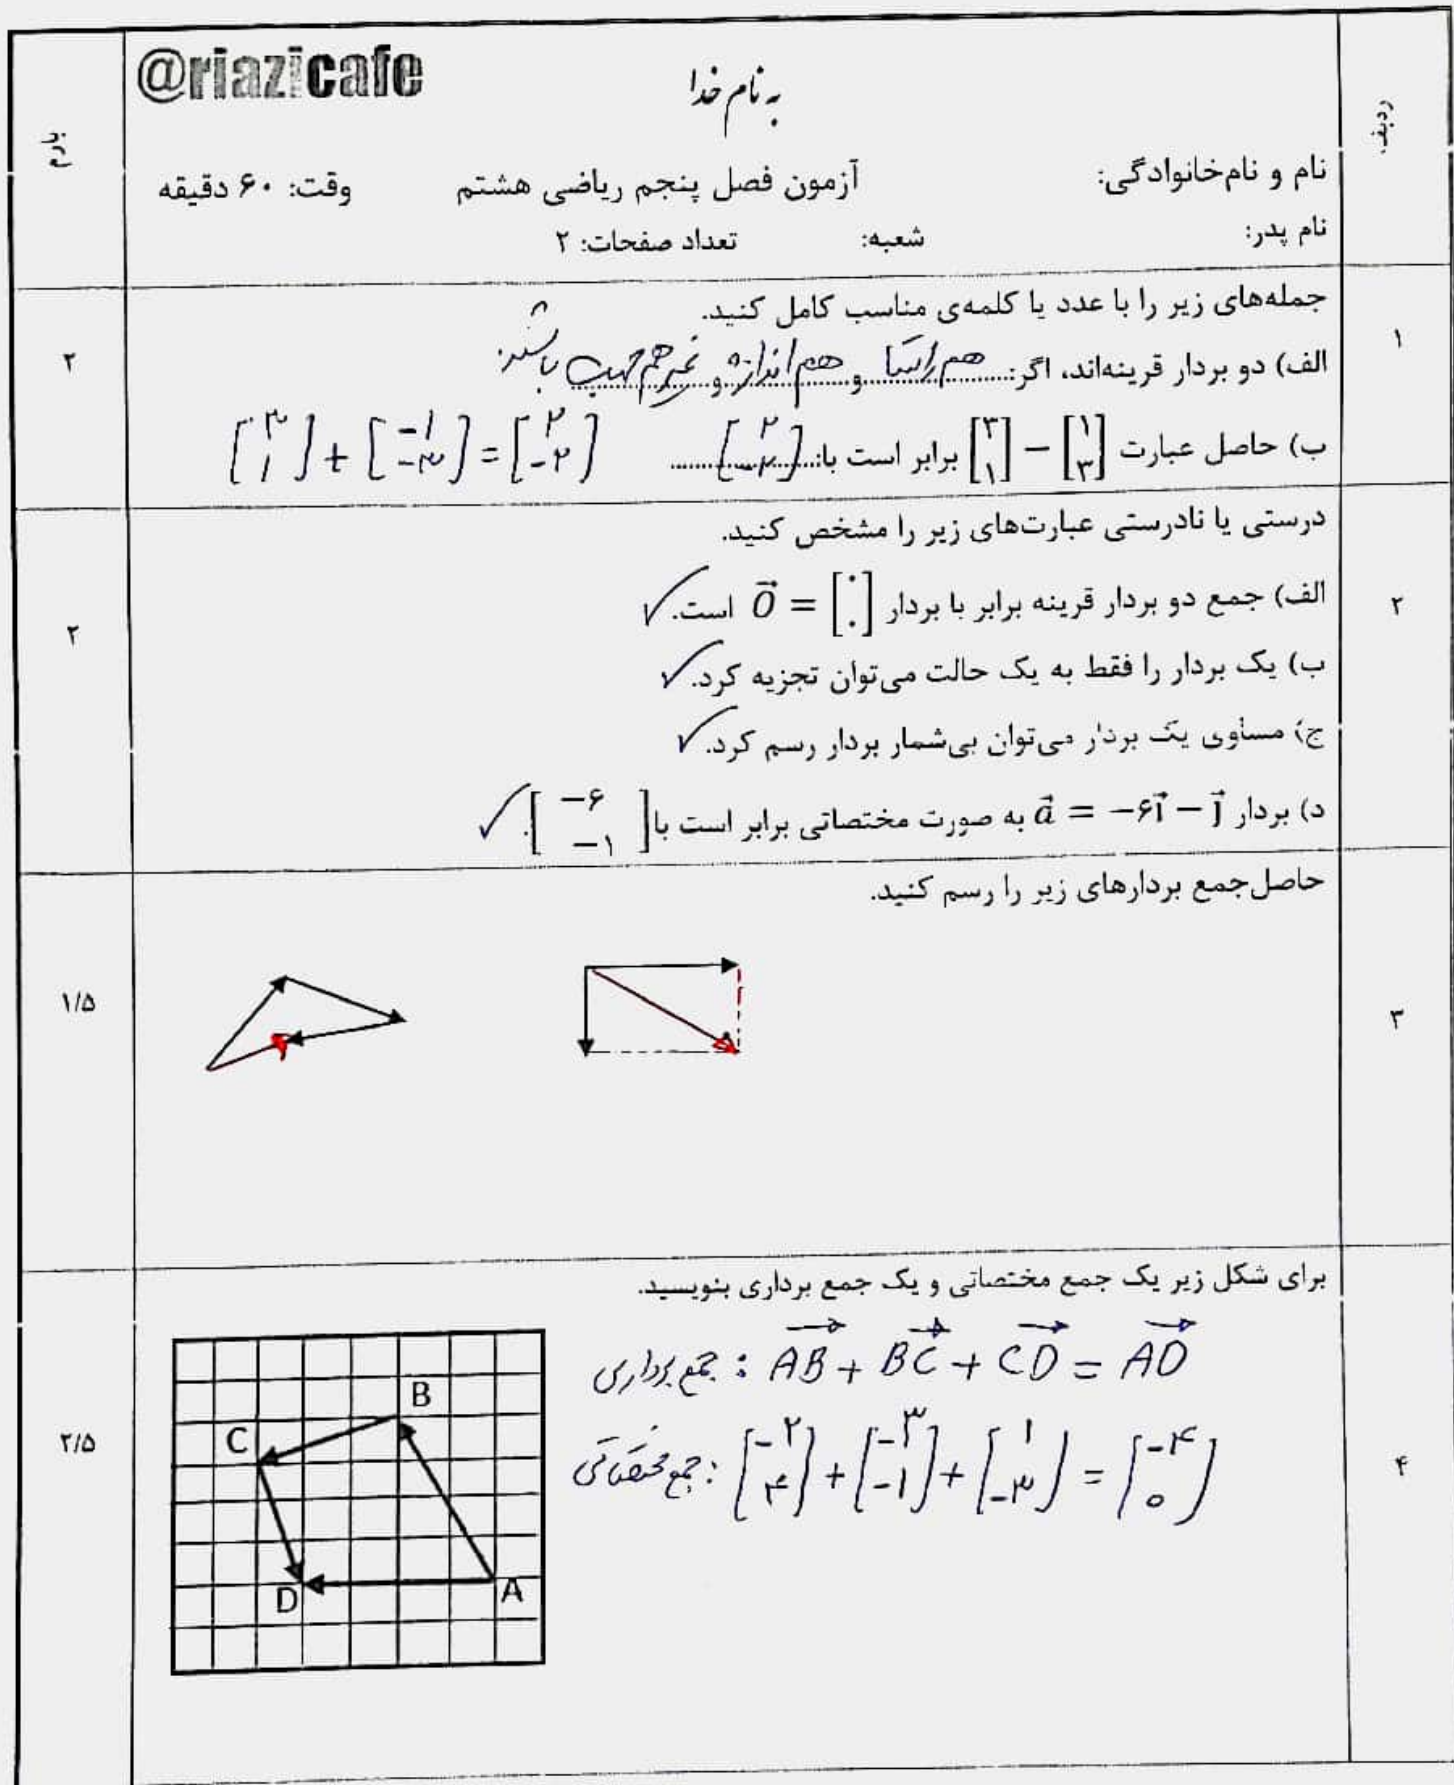 @riazicafe
به نام خدا
ردیف
بارم
نام و نام‌خانوادگی: آزمون فصل پنجم ریاضی هشتم وقت: ۶۰ دقیقه
نام پدر: شعبه: تعداد صفحات: ۲
۱
جمله‌های زیر را با عدد یا کلمه‌ی مناسب کامل کنید.
۲
الف) دو بردار قرینه‌اند، اگر: هم راستا و هم اندازه و غیر هم جهت باشند.
ب) حاصل عبارت [۳ ۱] − [۱ ۳] برابر است با: [۲ -۲] [۳ ۱] + [-۱ -۳] = [۲ -۲]
درستی یا نادرستی عبارت‌های زیر را مشخص کنید.
۲
الف) جمع دو بردار قرینه برابر با بردار O⃗ = [۰ ۰] است. ✓
۲
ب) یک بردار را فقط به یک حالت می‌توان تجزیه کرد. ✓
ج) مساوی یک بردار می‌توان بی‌شمار بردار رسم کرد. ✓
د) بردار a⃗ = −۶i⃗ − j⃗ به صورت مختصاتی برابر است با [−۶ −۱]. ✓
حاصل‌جمع بردارهای زیر را رسم کنید.
۳
۱/۵
برای شکل زیر یک جمع مختصاتی و یک جمع برداری بنویسید.
جمع برداری : AB + BC + CD = AD
۴
جمع مختصاتی : [-۲ ۴] + [-۳ -۱] + [۱ -۳] = [-۴ ۰]
۲/۵
B
C
D
A